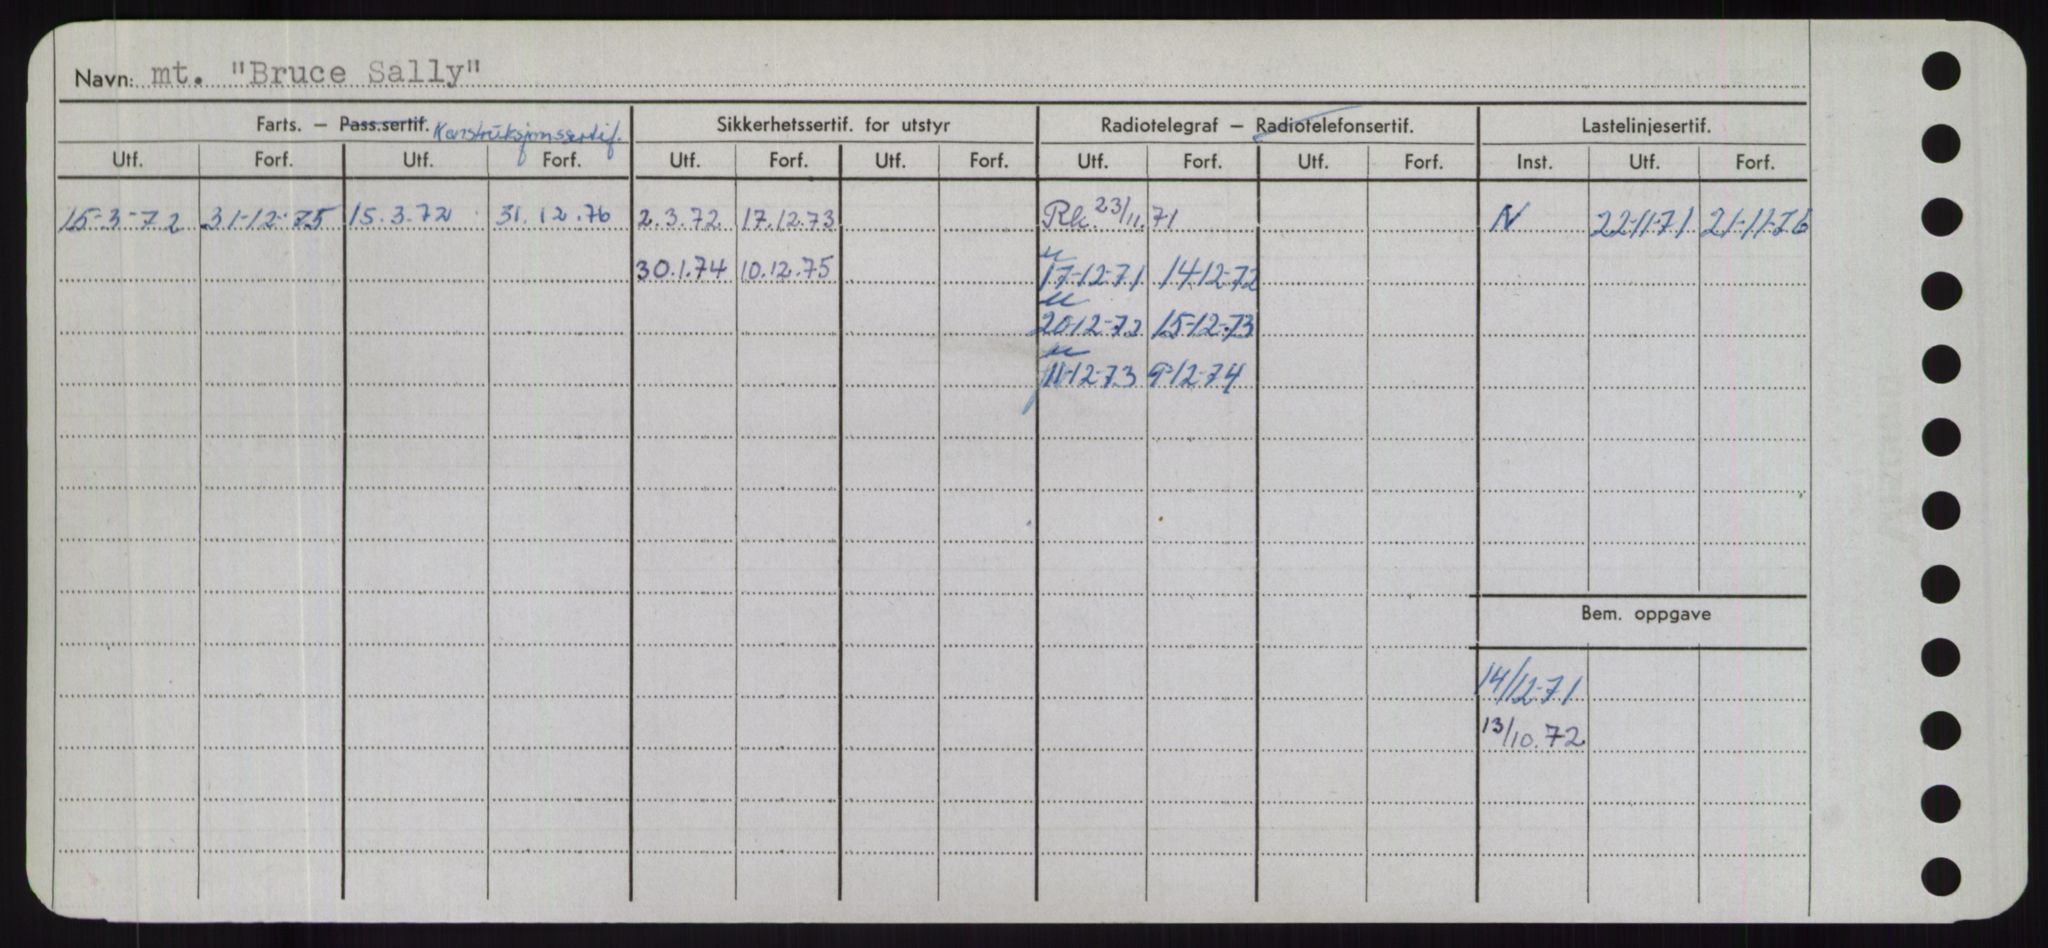 Navn: mt. "Bruce Sally"
Farts. — Pass.sertif. Konstruksjonssertif. Sikkerhetssertif. for utstyr Radiotelegraf — Radiotelefonsertif. Lastelinjesertif.
Utf. Forf. Utf. Forf. Utf. Forf. Utf. Forf. Utf. Forf. Utf. Forf. Inst. Utf. Forf.
15-3-72 31-12-75 15.3.72 31.12.76 2.3.72 17.12.73 Rk. 23/11.71 N 22-11-71 21-11-76
u
30.1.74 10.12.75 17-12-71 14-12-72
u
20-12-72 15-12-73
u
11-12-73 9-12-74
Bem. oppgave
14/12-71
13/10.72